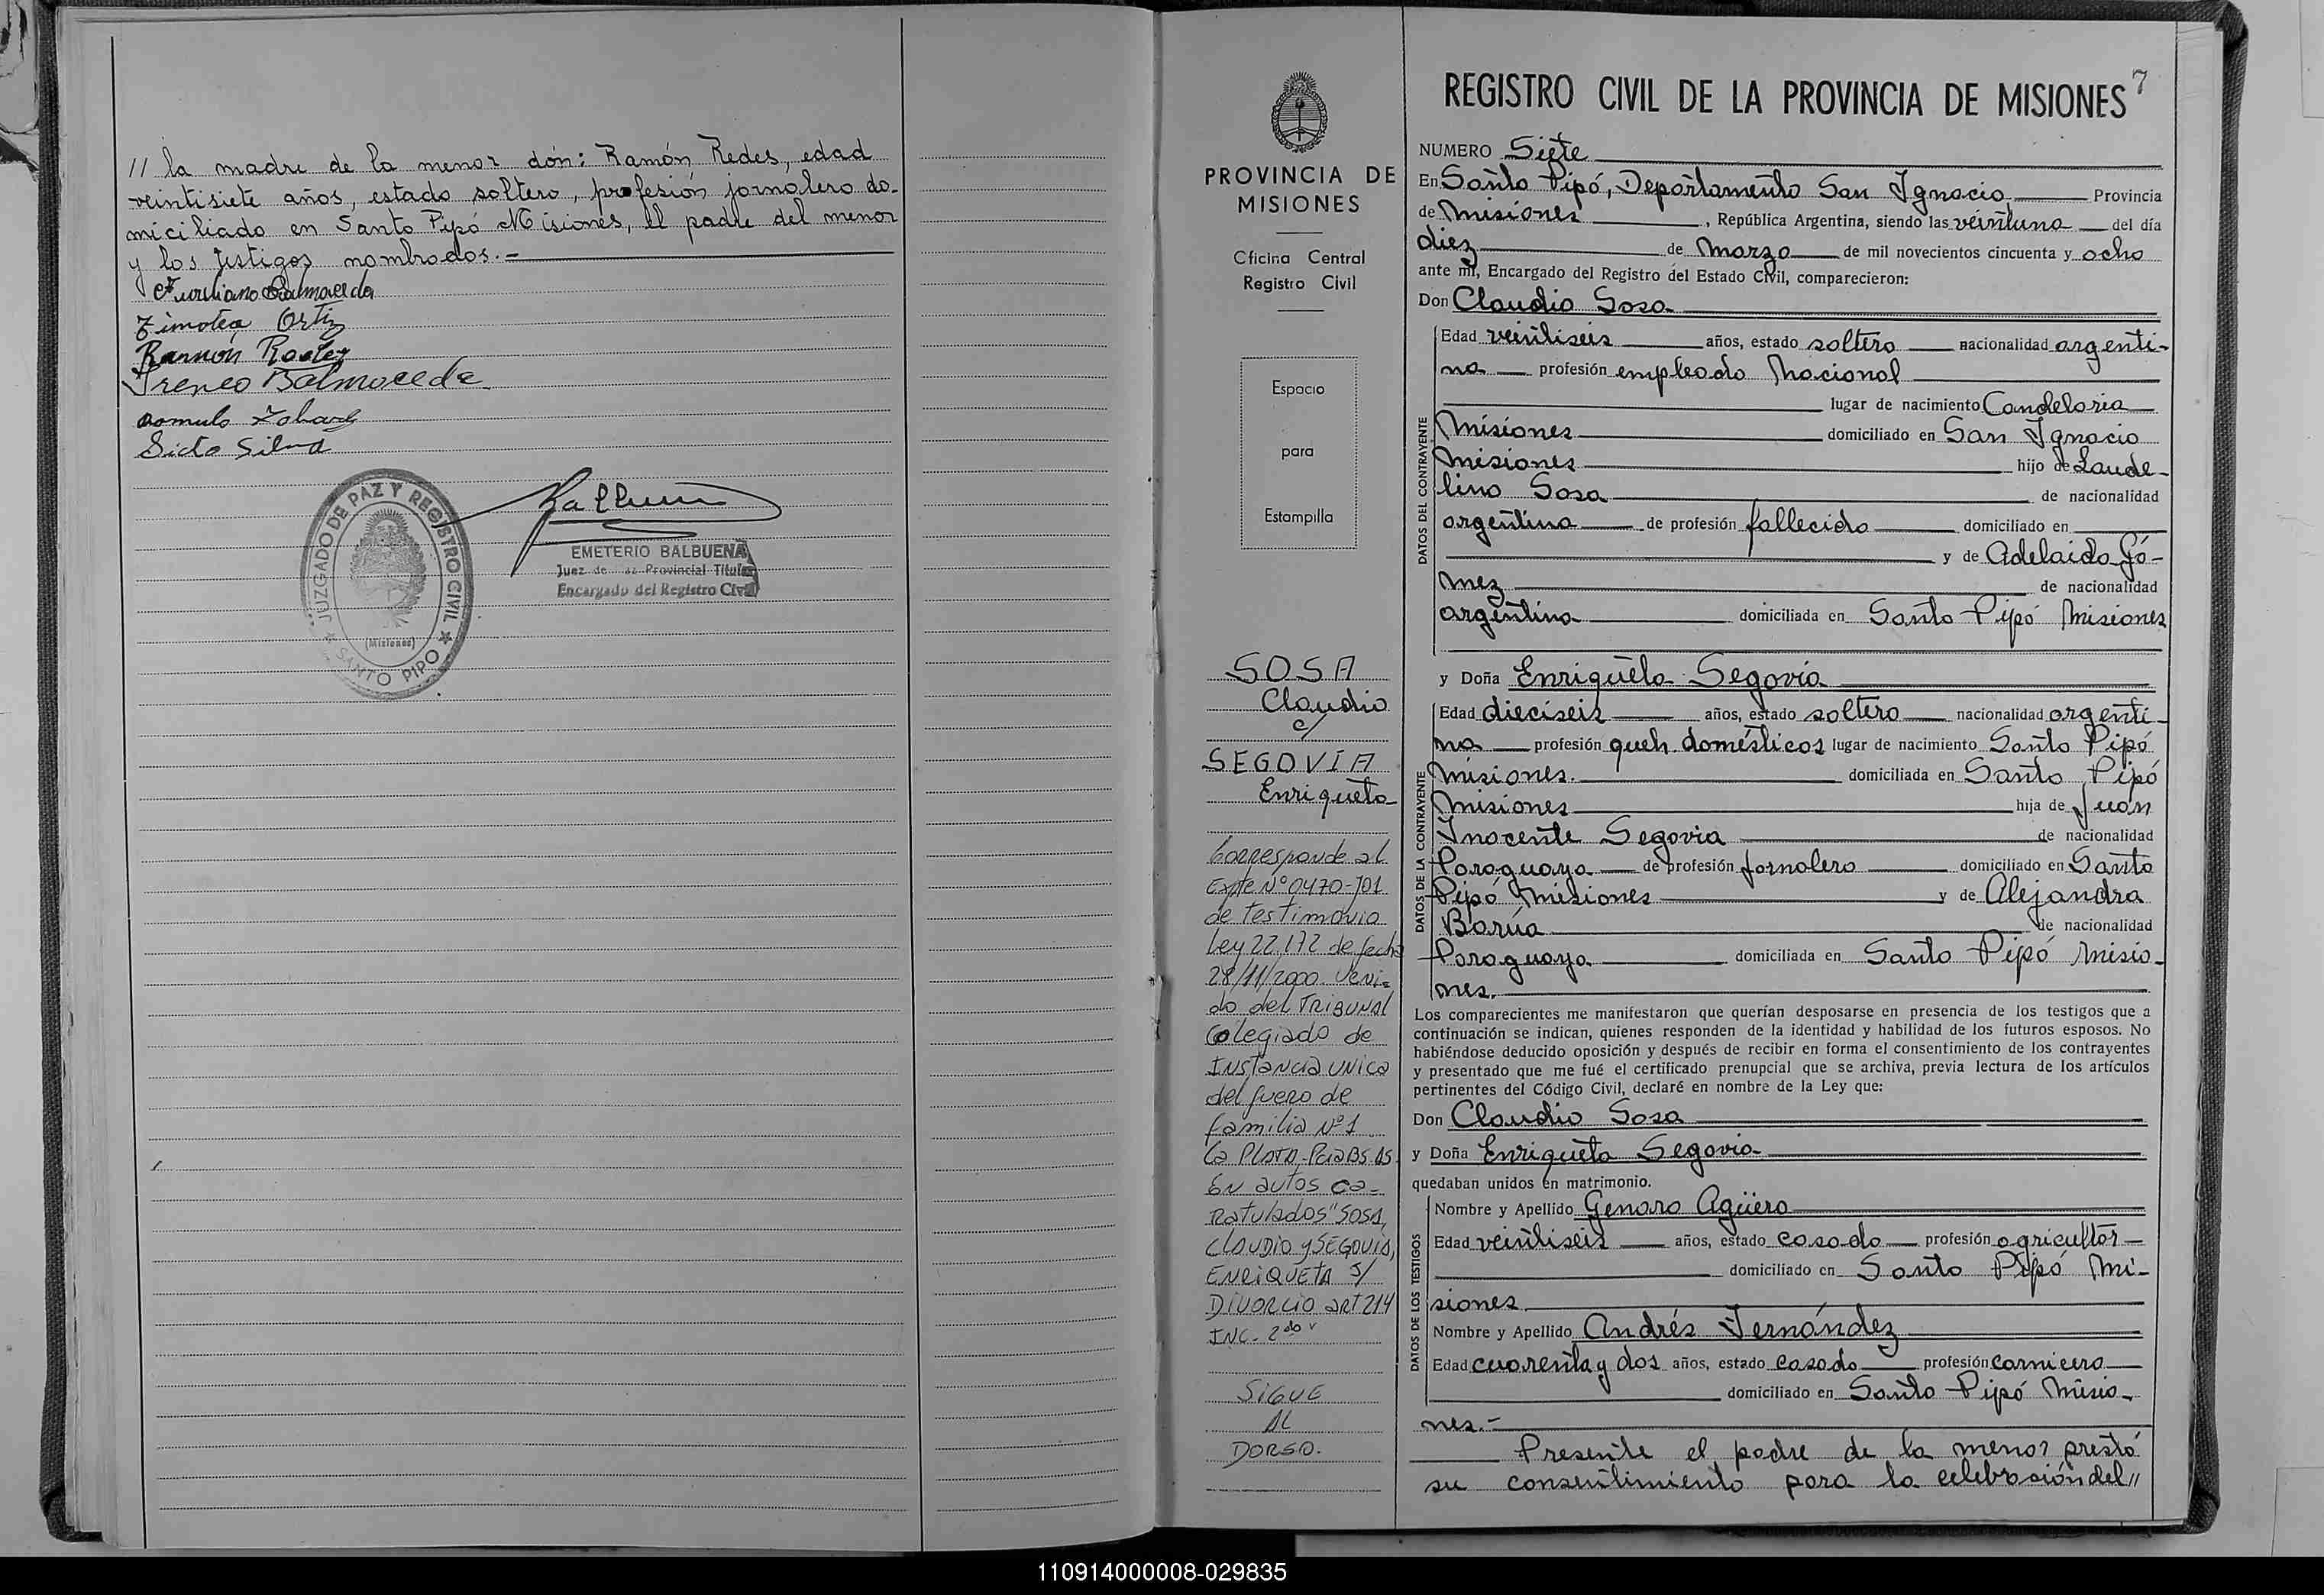 // la madre de la menor don: Ramón Redes, edad
veintisiete años, estado soltero, profesión jornalero do-
miciliado en Santo Pipó Misiones, el padre del menor
y los testigos nombrados.-
Balmaceda
Timotea Ortiz
Ramón
Ireneo Balmaceda
Romulo
Sicto Silva
JUZGADO DE PAZ Y REGISTRO CIVIL
(Misiones)
SANTO PIPO
EMETERIO BALBUENA
Juez de Paz Provincial Titular
Encargado del Registro Civil
PROVINCIA DE
MISIONES
Oficina Central
Registro Civil
Espacio
para
Estampilla
SOSA
Claudio
c/
SEGOVIA
Enriqueta
Corresponde al
Expte Nº 0470-J01
de Testimonio
Ley 22.172 de fecha
28/11/2000. Veni-
do del TRIBUNAL
Colegiado de
INSTANCIA UNICA
del fuero de
familia Nº 1
La PLATA-Pcia BS AS
EN autos ca-
RATULADOS "SOSA,
CLAUDIO y SEGOVIA,
ENRIQUETA S/
DIVORCIO ART 214
INC- 2do
SIGUE
AL
DORSO.
REGISTRO CIVIL DE LA PROVINCIA DE MISIONES 7
NUMERO Siete
En Santo Pipó, Departamento San Ignacio Provincia
de Misiones, República Argentina, siendo las veintiuna del día
diez de Marzo de mil novecientos cincuenta y ocho
ante mí, Encargado del Registro del Estado Civil, comparecieron:
Don Claudio Sosa
DATOS DEL CONTRAYENTE
Edad veintiseis años, estado soltero nacionalidad argenti-
na profesión empleado Nacional
lugar de nacimiento Candelaria
Misiones domiciliado en San Ignacio
Misiones hijo de Laude-
lino Sosa de nacionalidad
argentina de profesión fallecido domiciliado en
y de Adelaida Gó-
mez de nacionalidad
argentina domiciliada en Santo Pipó Misiones
y Doña Enriqueta Segovia
DATOS DE LA CONTRAYENTE
Edad dieciseis años, estado soltero nacionalidad argenti-
na profesión queh. domésticos lugar de nacimiento Santo Pipó
Misiones. domiciliada en Santo Pipó
Misiones hija de Juan
Inocente Segovia de nacionalidad
Paraguaya de profesión jornalero domiciliado en Santo
Pipó Misiones y de Alejandra
Barúa de nacionalidad
Paraguaya domiciliada en Santo Pipó Misio-
nes.
Los comparecientes me manifestaron que querían desposarse en presencia de los testigos que a
continuación se indican, quienes responden de la identidad y habilidad de los futuros esposos. No
habiéndose deducido oposición y después de recibir en forma el consentimiento de los contrayentes
y presentado que me fué el certificado prenupcial que se archiva, previa lectura de los artículos
pertinentes del Código Civil, declaré en nombre de la Ley que:
Don Claudio Sosa
y Doña Enriqueta Segovia
quedaban unidos en matrimonio.
DATOS DE LOS TESTIGOS
Nombre y Apellido Genaro Agüero
Edad veintiseis años, estado casado profesión agricultor
domiciliado en Santo Pipó Mi-
siones
Nombre y Apellido Andrés Fernández
Edad cuarenta y dos años, estado casado profesión carnicero
domiciliado en Santo Pipó Misio-
nes.-
Presente el padre de la menor prestó
su consentimiento para la celebración del //
110914000008-029835